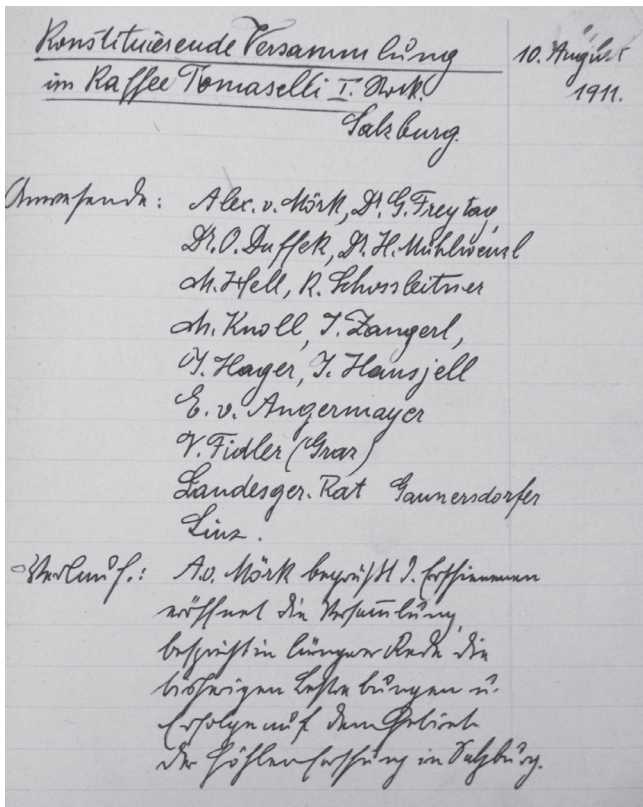 Konstituierende Versammlung 10. August
im Kaffee Tomaselli I. Stock. 1911.
Salzburg.
Anwesende: Alex. v. Mörk, Dr. G. Freytag,
Dr. O. Duffek, Dr. H. Mühlwenzl
M. Hell, R. Schossleitner
M. Knoll, J. Zangerl,
J. Hager, J. Hansjell
E. v. Angermayer
V. Fidler (Graz)
Landesger. Rat Gannersdorfer
Linz.
Verlauf.: A. v. Mörk begrüßt d. Erschienenen
eröffnet die Versammlung,
bespricht in längerer Rede die
bisherigen Bestrebungen u.
Erfolge auf dem Gebiete
der Höhlenforschung in Salzburg.